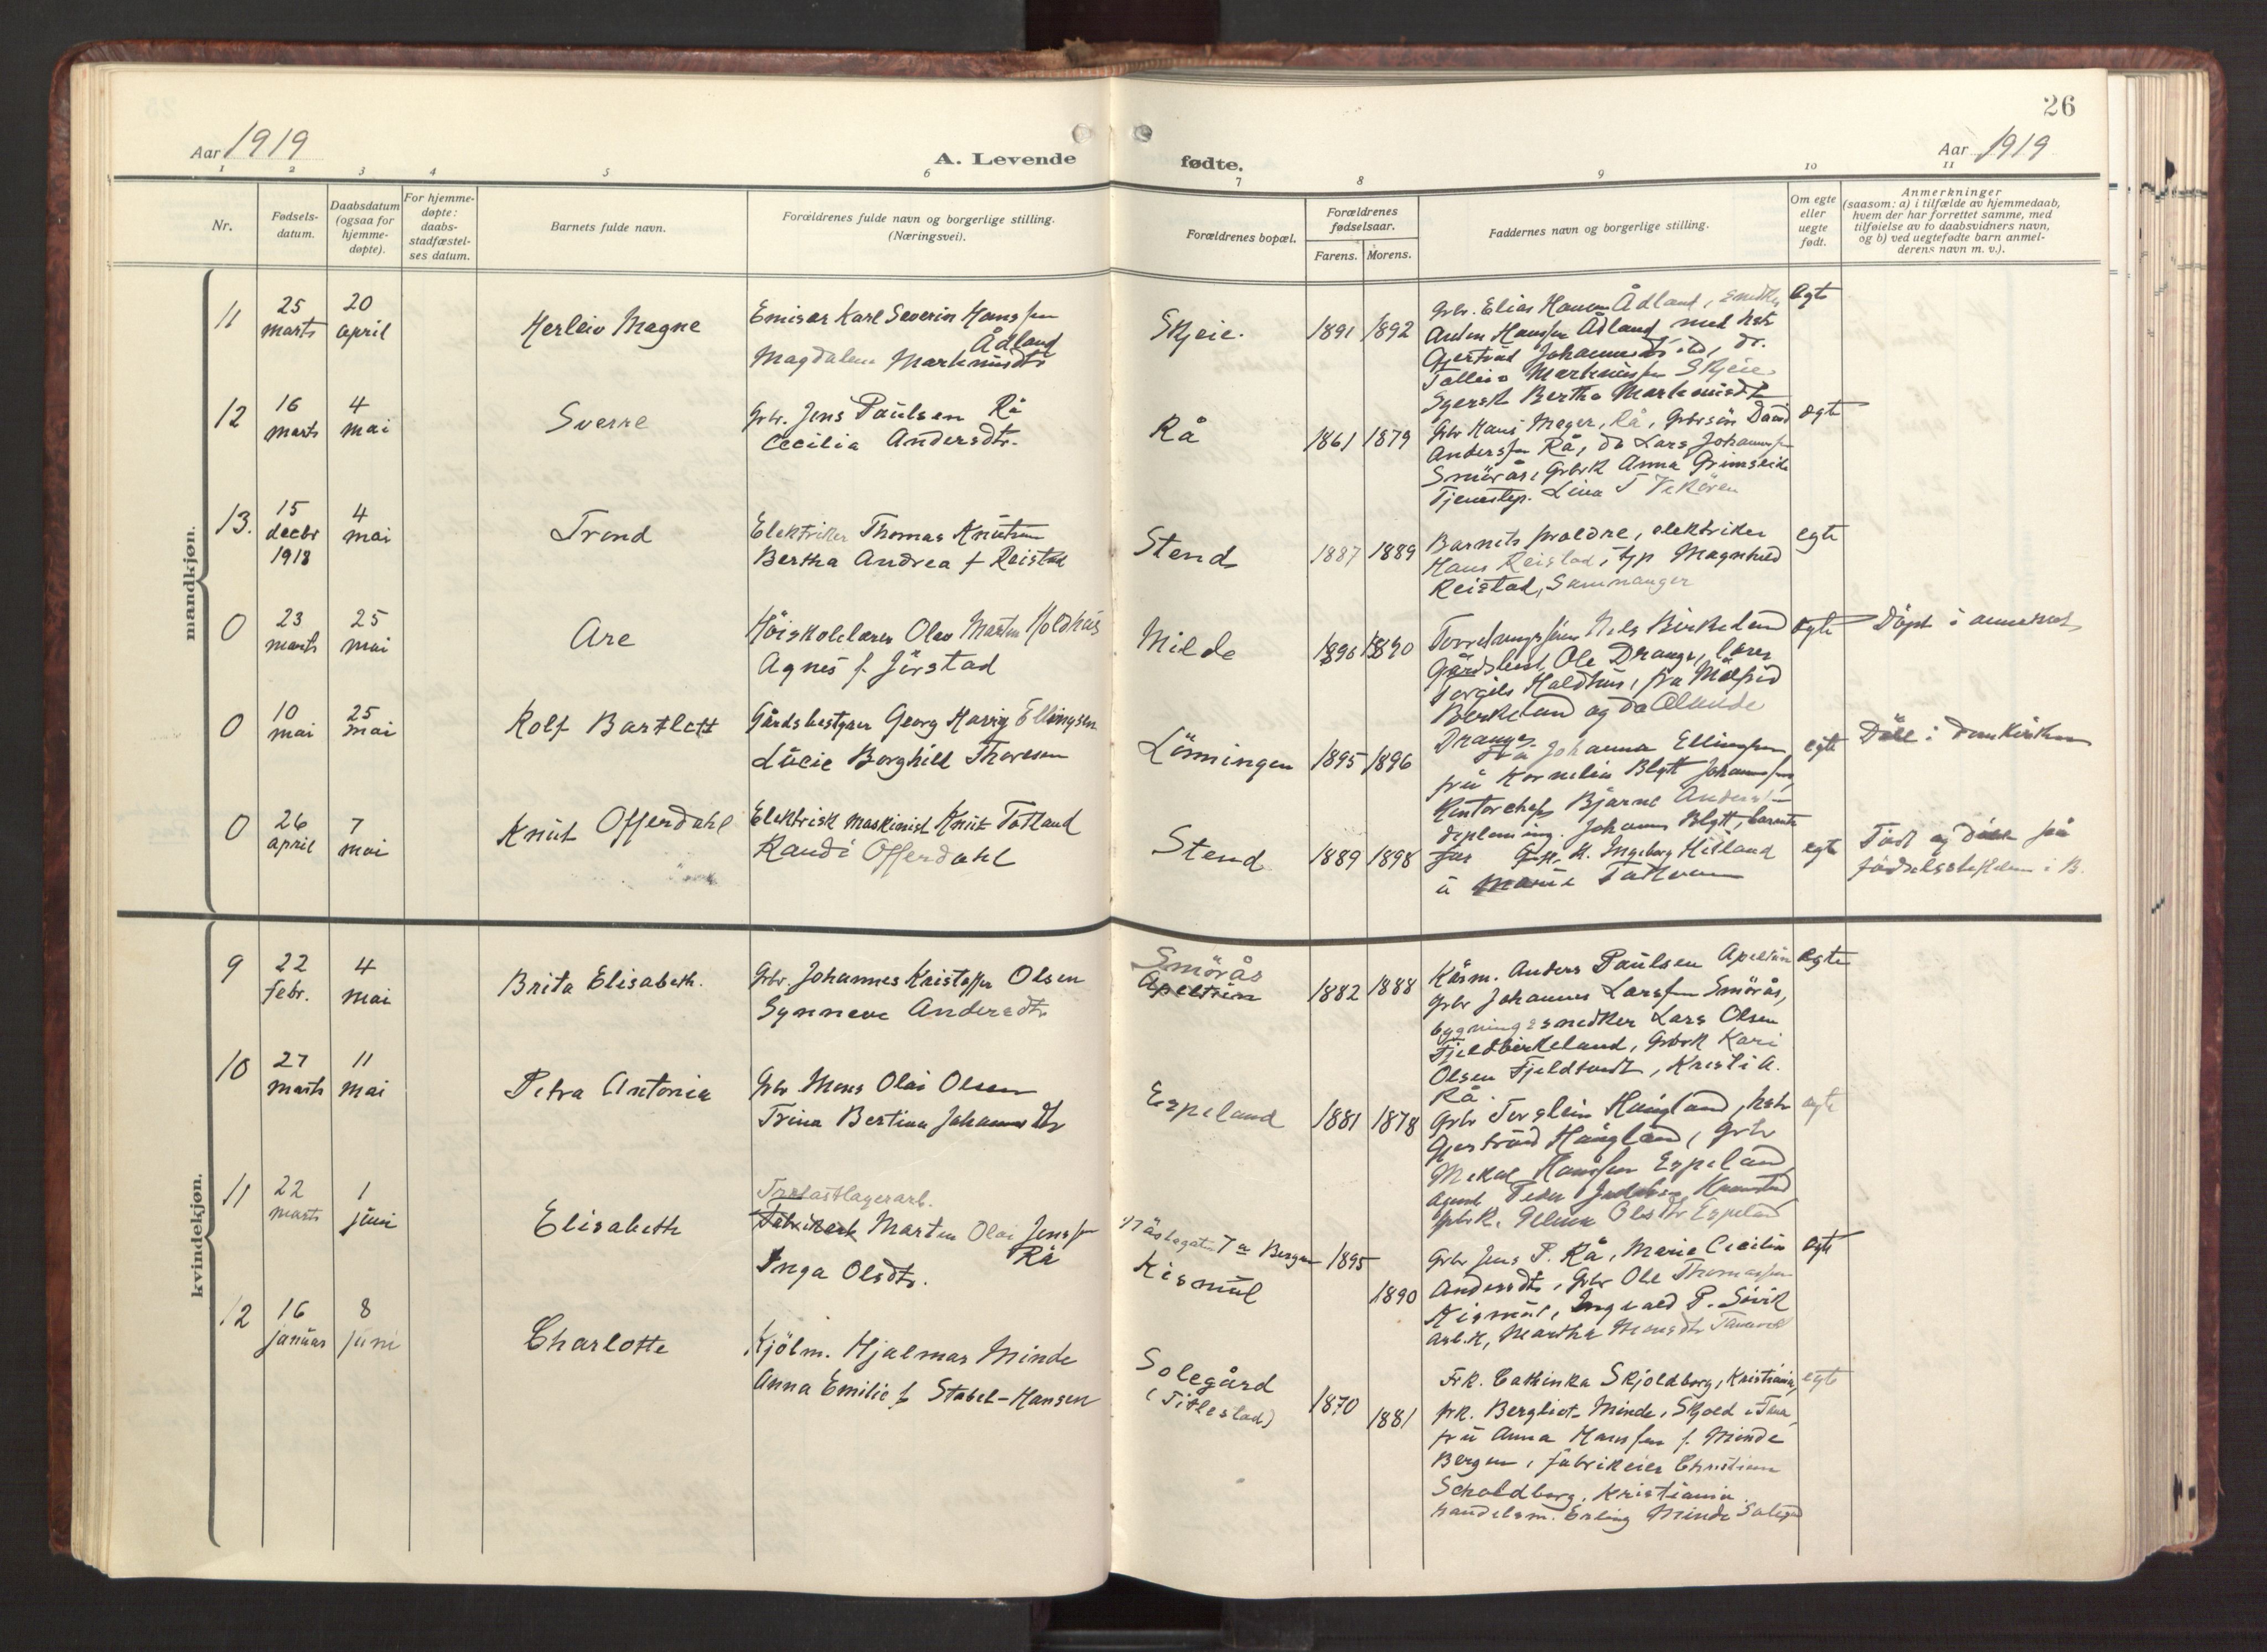 26
Aar 1919
A. Levende
fødte.
Aar 1919
1 2 3 4 5 6 7 8 9 10 11
Nr.
Fødsels-
datum.
Daabsdatum
(ogsaa for
hjemme-
døpte).
For hjemme-
døpte:
daabs-
stadfæstel-
ses datum.
Barnets fulde navn.
Forældrenes fulde navn og borgerlige stilling.
(Næringsvei).
Forældrenes bopæl.
Forældrenes
fødselsaar.
Farens. Morens.
Faddernes navn og borgerlige stilling.
Om egte
eller
uegte
født.
Anmerkninger
(saasom: a) i tilfælde av hjemmedaab,
hvem der har forrettet samme, med
tilføielse av to daabsvidners navn,
og b) ved uegtefødte barn anmel-
derens navn m. v.).
mandkjøn.
11
25
marts
20
april
Herleiv Magne
Emisær Karl Severin Hanssen
Ådland
Magdalena Markusdtr
Skjeie.
1891 1892
Grbr. Elias Hansen Ådland, snedker
Anton Hanssen Ådland med hstr
Gjertrud Johannesdtr ibd, dr.
Tolleiv Skjeie
Bertha
egte
12
16
marts
4
mai
Sverre
Grbr. Jens Paulsen Rå
Cecilia Andersdtr.
Rå
1861 1879
Grbr Hans Meyer, Rå, Grbrsøn David
Anderssen Rå, do Lars Johannssen
Smörås, Grbrk Anna Grimseid
Tjenestep. Lina T
egte
13.
15
decbr
1918
4
mai
Trond
Elektriker Thomas Knutsen
Bertha Andrea f Reistad
Stend
1887 1889
Barnets foreldre, elektriker
Hans Reistad, tjp Magnhild
Reistad, Samnanger
egte
0
23
marts
25
mai
Are
Höiskolelærer Olav Martin Holdhus
Agnes f. Jörstad
Milde
1896 1890
Nils Birkeland
Ole Drange, lærer
Torgils Holdhus, fru Målfrid
Birkeland og do Olaude
Drange.
egte
Döpt i annexet
0
10
mai
25
mai
Rolf Bartlett
Gårdsbestyrer Georg Ellingsen
Lucie Borghild Thoresen
Lönningen
1895 1896
Fru Johanna Ellingsen
fru Kornelia Blytt Johannessen,
Kontorchef Bjarne
deplom ing. Johannes Blytt, barnets
far
egte
Döbt i Domkirken
0
26
april
7
mai
Knut Offerdahl
Elektrisk maskinist Knut Totland
Randi Offerdahl
Stend
1889 1898
Ingeborg Hisland
egte
Födt og döbt på
födselsstiftelsen i B.
kvindekjøn.
9
22
febr.
4
mai
Brita Elisabeth.
Grbr. Johannes Kristoffer Olsen
Synneve Andersdtr
Smörås
Apeltun
1882 1888
Kårm. Anders Paulsen Apeltun
Grbr Johannes Larssen Smörås,
bygningssnedker Lars Olsen
Fjeldbirkeland, Grbrk Kari
Olsen Fjeldtvedt, Kristi A.
Rå.
egte
10
27
marts
11
mai
Petra Antonia
Grbr Mons Olai Olsen
Trina Bertina Johannesdtr
Espeland
1881 1878
Grbr Torstein Haugland, hstr
Gjertrud Haugland, Grbr
Mikal Hanssen Espeland
Peder
Olsdtr Espeland
egte
11
22
marts
1
juni
Elisabeth
Trælastlagerarb.
Fabrikarb Martin Olai Jenssen
Rå
Inga Olsdtr.
7a Bergen
Kismul
1895
1890
Grbr Jens P. Rå, Marie Cecilia
Andersdtr, Grbr Ole Thomassen
Kismul, Ingvald P.
arb.k, Martha Monsdtr
egte
12
16
januar
8
juni
Charlotte
Kjölm. Hjalmar Minde
Anna Emilie f. Stabel-Hansen
Solegård
(Titlestad)
1870
1881
Frk. Cathinka Skjoldborg, Kristiania,
frk. Bergliot Minde, Skjold i Fana,
fru Anna Hanssen f. Minde
Bergen, fabrikeier Christian
Scholdborg, Kristiania
handelsm. Erling Minde
egte